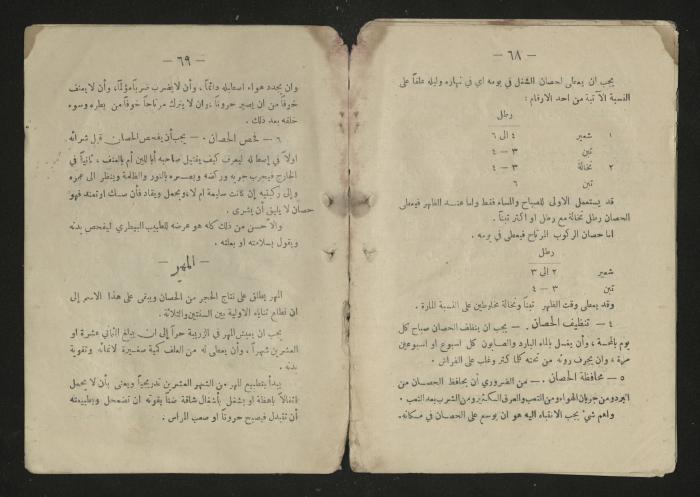 — ٦٨ —
يجب ان يعطى لحصان الشغل في يومه اي في نهاره وليله علفاً على
النسبة الآتية من احد الارقام :
رطل
١ شعير ٤ الى ٦
تبن ٣ — ٤
٢ نخالة ٣ — ٤
تبن ٦
قد يستعمل الاولى للصباح والمساء فقط واما عند الظهر فيعطى
الحصان رطل نخالة مع رطل او اكثر تبناً .
اما حصان الركوب المرتاح فيعطى في يومه .
رطل
شعير ٢ الى ٣
تبن ٣ — ٤
وقد يعطى وقت الظهر تبناً ونخالة مخلوطين على النسبة المارة .
٤ — تنظيف الحصان . — يجب ان ينظف الحصان صباح كل
يوم بالمحسة ، وأن يغسل بالماء البارد والصابون كل اسبوع او اسبوعين
مرة ، وان يجرف روثه من تحته كلما كثر وغلب على الفراش .
٥ — محافظة الحصان . — من الضروري أن يحافظ الحصان من
البرد ومن جريان الهواء ومن التعب والعرق الكثير ومن الشرب بعد التعب .
واهم شيء يجب الانتباه اليه هو ان يوسع على الحصان في مكانه .
— ٦٩ —
وان يجدد هواء اصطبله دائماً ، وأن لا يضرب ضرباً مؤلماً ، وأن لا يعنف
خوفاً من ان يصير حروناً ، وان لا يترك مرتاحاً خوفاً من بطره وسوء
خلقه بعد ذلك .
٦ — فحص الحصان . — يجب أن يفحص الحصان قبل شرائه
اولاً في إسطبله ليعرف كيف يعتيل صاحبه أباللين أم بالعنف ، ثانياً في
الخارج فيجرب جريه وركضه وبصره بالنور والظلمة وينظر الى عمره
وإلى ركبتيه إن كانت سليمة ام لا ، ويحمل ويقاد فأن سك او تمند فهو
حصان لا يليق أن يشرى .
والاحسن من ذلك كله هو عرضه للطبيب البيطري ليفحص بدنه
ويقول بسلامته او بعلته .
— المهر —
المهر يطلق على نتاج الحجر من الحصان ويبقى على هذا الاسم إلى
ان تطلع ثناياه الاولية بين السنتين والثلاثة .
يجب ان يعيش المهر في الزريبة حراً إلى ان يبلغ الثاني عشرة او
العشرين شهراً ، وأن يعطى له من العلف كمية صغيرة لانمائه وتقوية
بدنه .
يبدأ بتطبيع المهر من الشهر العشرين تدريجياً ويعنى بأن لا يحمل
اثقالاً باهظة او يشغل بأشغال شاقة ضناً بقوته ان تضمحل وبطبيعته
أن تتبدل فيصبح حروناً او صعب المراس .